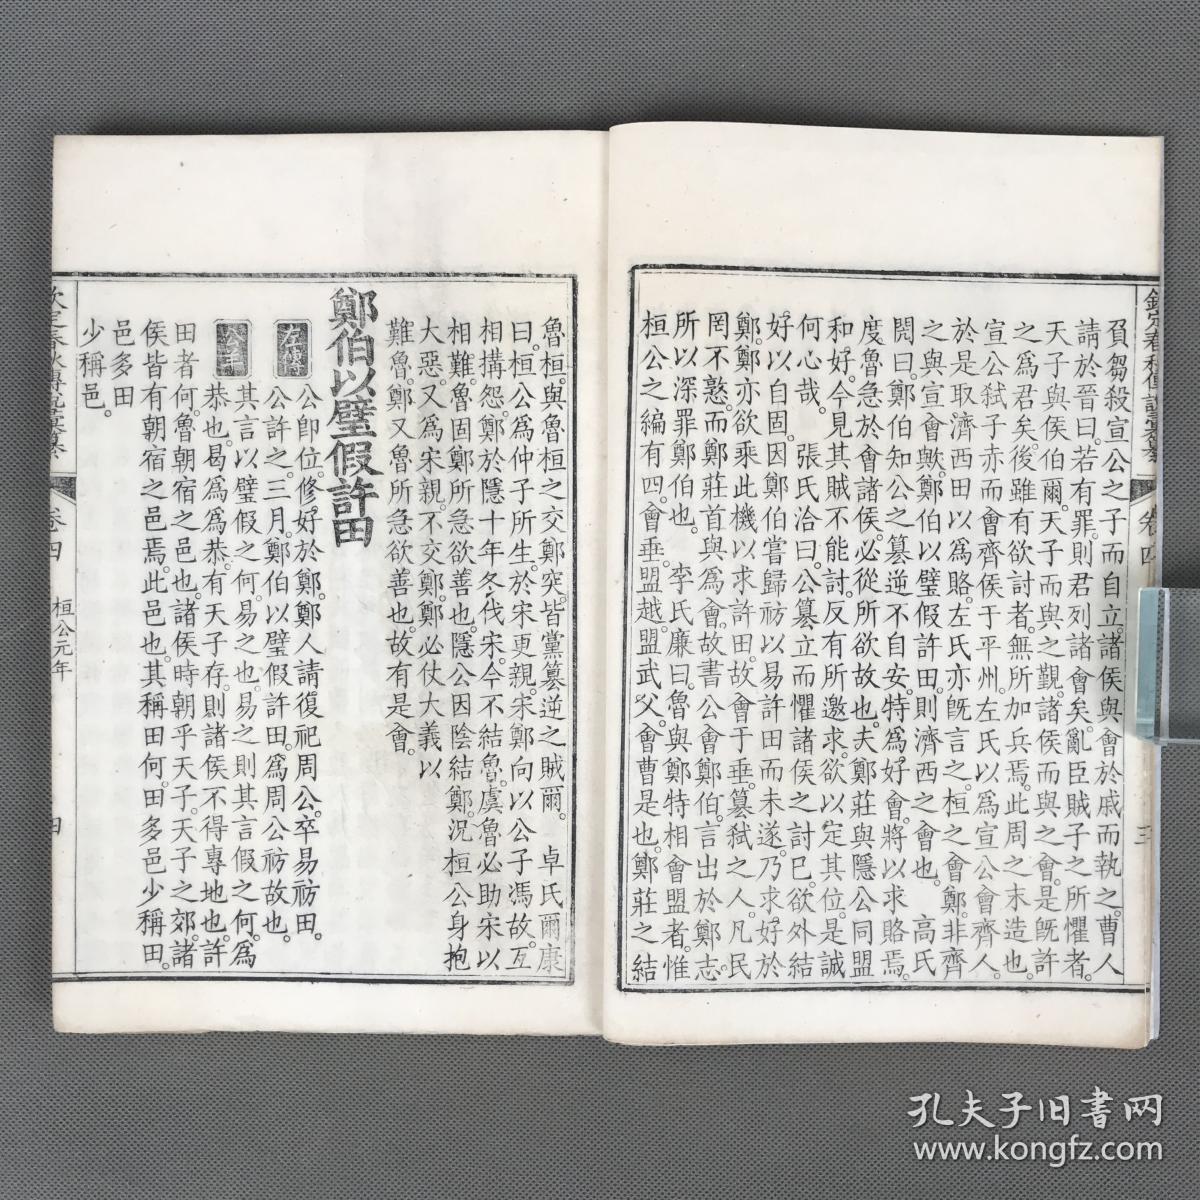 欽定春秋傳說彙纂
卷四
三
負芻殺宣公之子而自立諸侯與會於戚而執之曹人
請於晉曰若有罪則君列諸會矣亂臣賊子之所懼者
天子與侯伯爾天子而與之覲諸侯而與之會是旣許
之爲君矣後雖有欲討者無所加兵焉此周之末造也
宣公弑子赤而會齊侯于平州左氏以爲宣公會齊人
於是取濟西田以爲賂左氏亦旣言之桓之會鄭非齊
之與宣會歟鄭伯以璧假許田則濟西之會也 高氏
閌曰鄭伯知公之篡逆不自安特爲好會將以求賂焉
度魯急於會諸侯必從所欲故也夫鄭莊與隱公同盟
和好今見其賊不能討反有所邀求欲以定其位是誠
何心哉 張氏洽曰公篡立而懼諸侯之討已欲外結
好以自固因鄭伯嘗歸祊以易許田而未遂乃求好於
鄭鄭亦欲乘此機以求許田故會于垂篡弑之人凡民
罔不憝而鄭莊首與爲會故書公會鄭伯言出於鄭志
所以深罪鄭伯也 李氏廉曰魯與鄭特相會盟者惟
桓公之編有四會垂盟越盟武父會曹是也鄭莊之結
魯桓與魯桓之交鄭突皆黨篡逆之賊爾 卓氏爾康
曰桓公爲仲子所生於宋更親宋鄭向以公子馮故互
相搆怨鄭於隱十年冬伐宋今不結魯虞魯必助宋以
相難魯固鄭所急欲善也隱公因陰結鄭況桓公身抱
大惡又爲宋親不交鄭鄭必仗大義以
難魯鄭又魯所急欲善也故有是會
鄭伯以璧假許田
左傳 公卽位修好於鄭鄭人請復祀周公卒易祊田
公許之三月鄭伯以璧假許田爲周公祊故也
公羊 其言以璧假之何易之也易之則其言假之何爲
恭也曷爲爲恭有天子存則諸侯不得專地也許
田者何魯朝宿之邑也諸侯時朝乎天子天子之郊諸
侯皆有朝宿之邑焉此邑也其稱田何田多邑少稱田
邑多田
少稱邑
欽定春秋傳說彙纂
卷四 桓公元年
四
孔夫子旧书网
www.kongfz.com